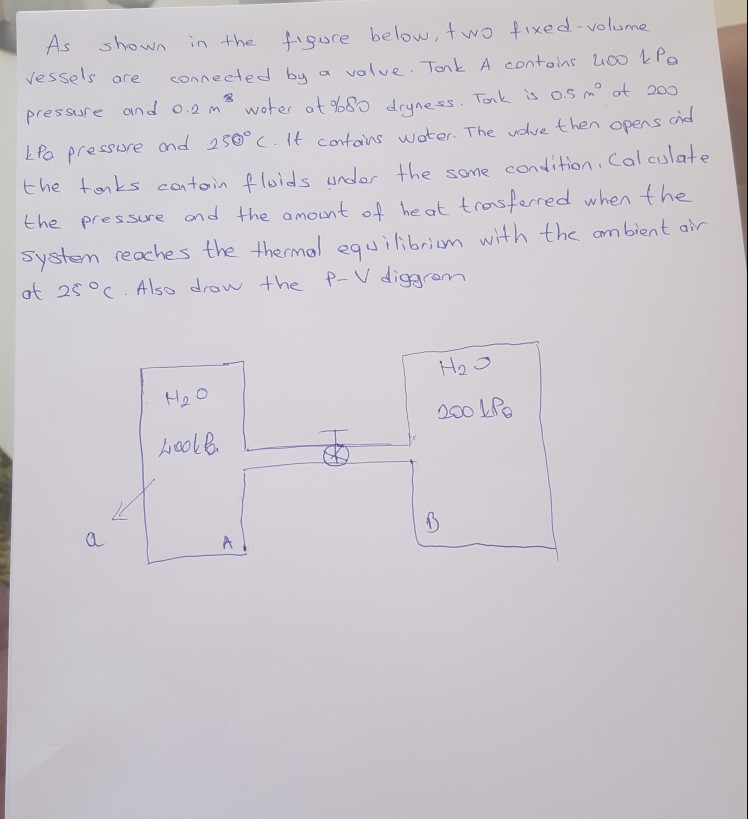 As shown in the figure below, two fixed-volume
vessels are connected by a valve. Tank A contains 400 kPa
pressure and 0.2 m³ water at %80 dryness. Tank is 0.5 m³ at 200
kPa pressure and 250°C. It contains water. The valve then opens and
the tanks contain fluids under the same condition. Calculate
the pressure and the amount of heat trasferred when the
system reaches the thermal equilibrium with the ambient air
at 25°C. Also draw the P-V diggram
H₂O
400 kPa
Q
A
H₂O
200 kPa
B